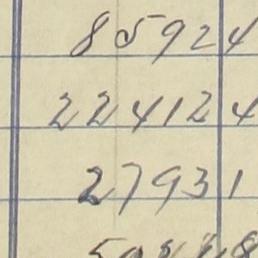 85924
224124
27931